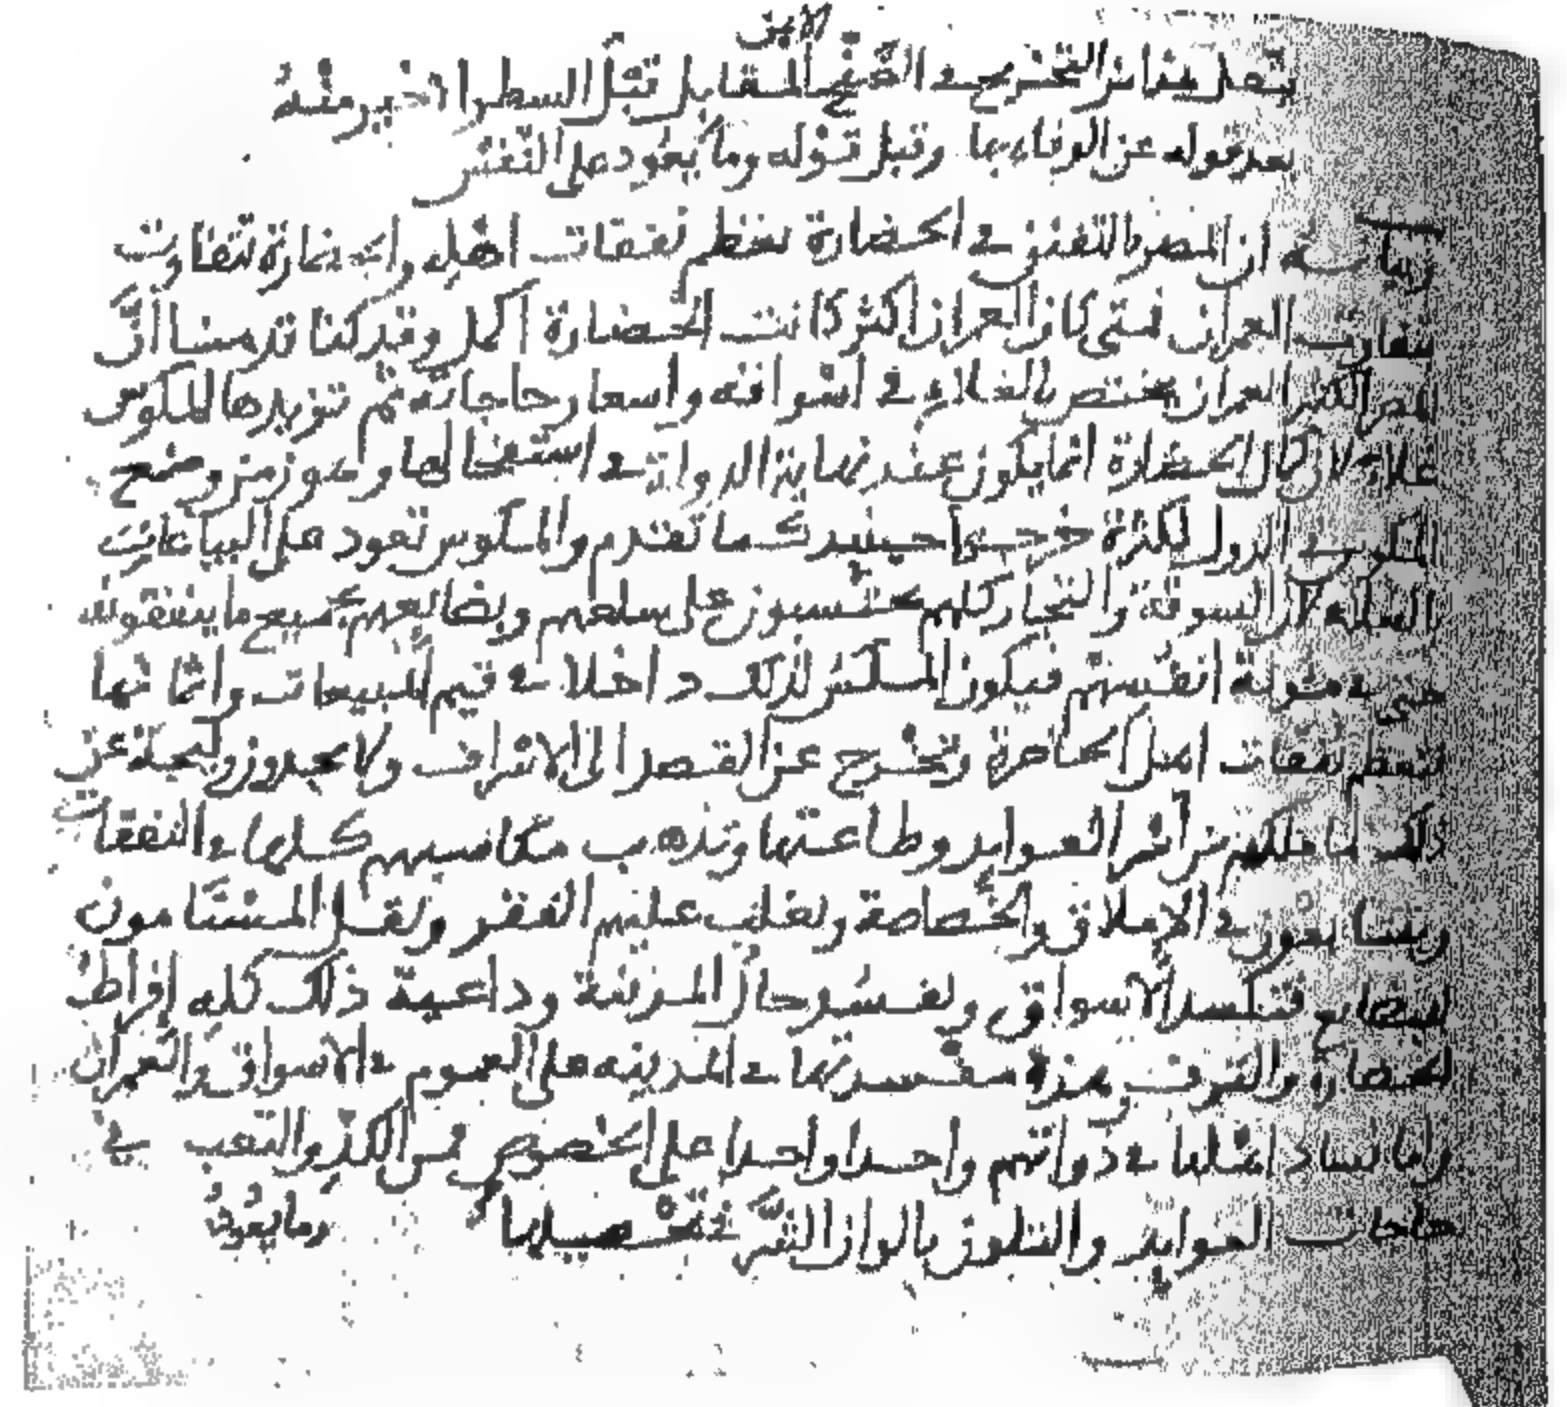 الايمن
يتصل هذا من التخريج في الصفح المقابل قبل السطر الاخير منه
بعد قوله عن الوفاء بها وقبل قوله وما يعود على النفس
وبيانه ان المصر بالتفنن في الحضارة تعظم نفقات اهله والحضارة تتفاوت
بتفاوت العمران فمتى كان العمران اكثر كانت الحضارة اكمل وقد كنا قدمنا أنّ
المصر الكثير العمران يختص بالغلاء في اسواقه واسعار حاجاته ثم تزيدها المكوس
غلاء لان كمال الحضارة انما يكون عند نهاية الدولة في استفحالها وهو زمن وضع
المكوس في الدول لكثرة خرجها حينيد كما تقدم والمكوس تعود على البياعات
بالغلاء لان السوقة والتجار كلهم يحتسبون على سلعهم وبضايعهم جميع ما ينفقونه
حتى في مئونة انفسهم فيكون المكس لذلك داخلا في قيم المبيعات واثمانها
فتعظم نفقات اهل الحاضرة وتخرج عن القصد الى الاسراف ولا يجدون وليجة عن
ذلك لما ملكهم من اثر العوايد وطاعتها وتذهب مكاسبهم كلها في النفقات
ويتتايعون في الاملاق والخصاصة ويغلب عليهم الفقر ويقل المستامون
للبضايع فتكسد الاسواق ويفسد حال المدينة وداعية ذلك كله إفراط
الحضارة والترف وهذه مفسدتها في المدينه على العموم في الاسواق والعمران
واما فساد اهلها في ذواتهم واحدا واحدا على الخصوص فمن الكد والتعب في
حاجات العوايد والتلون بالوان الشر في تحصيلها وما يعود